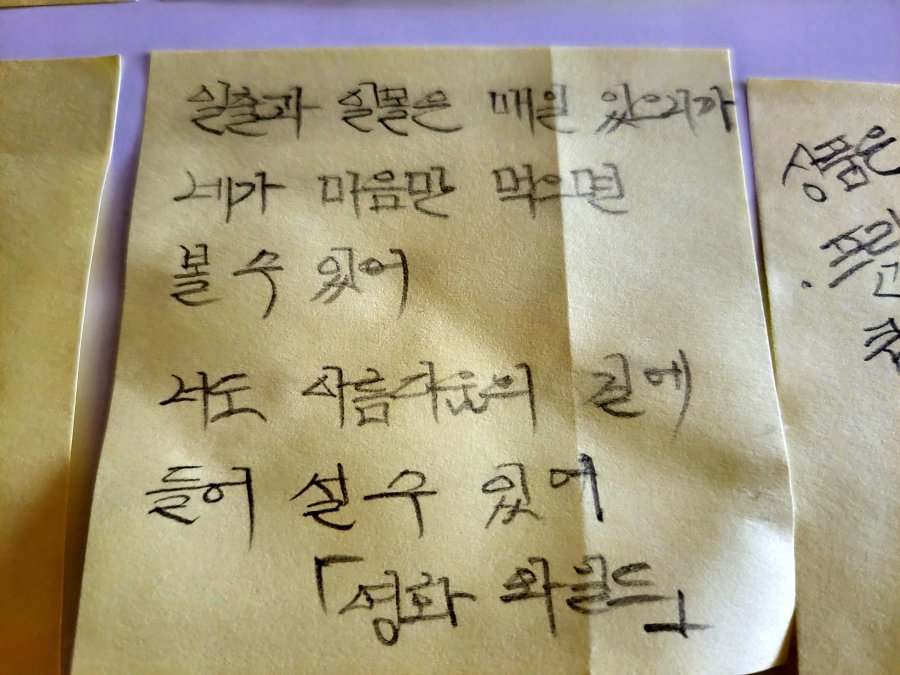 일출과 일몰은 매일 있으니까
네가 마음만 먹으면
볼 수 있어
너도 아름다움의 길에
들어 설 수 있어
「영화 와일드」
상품은